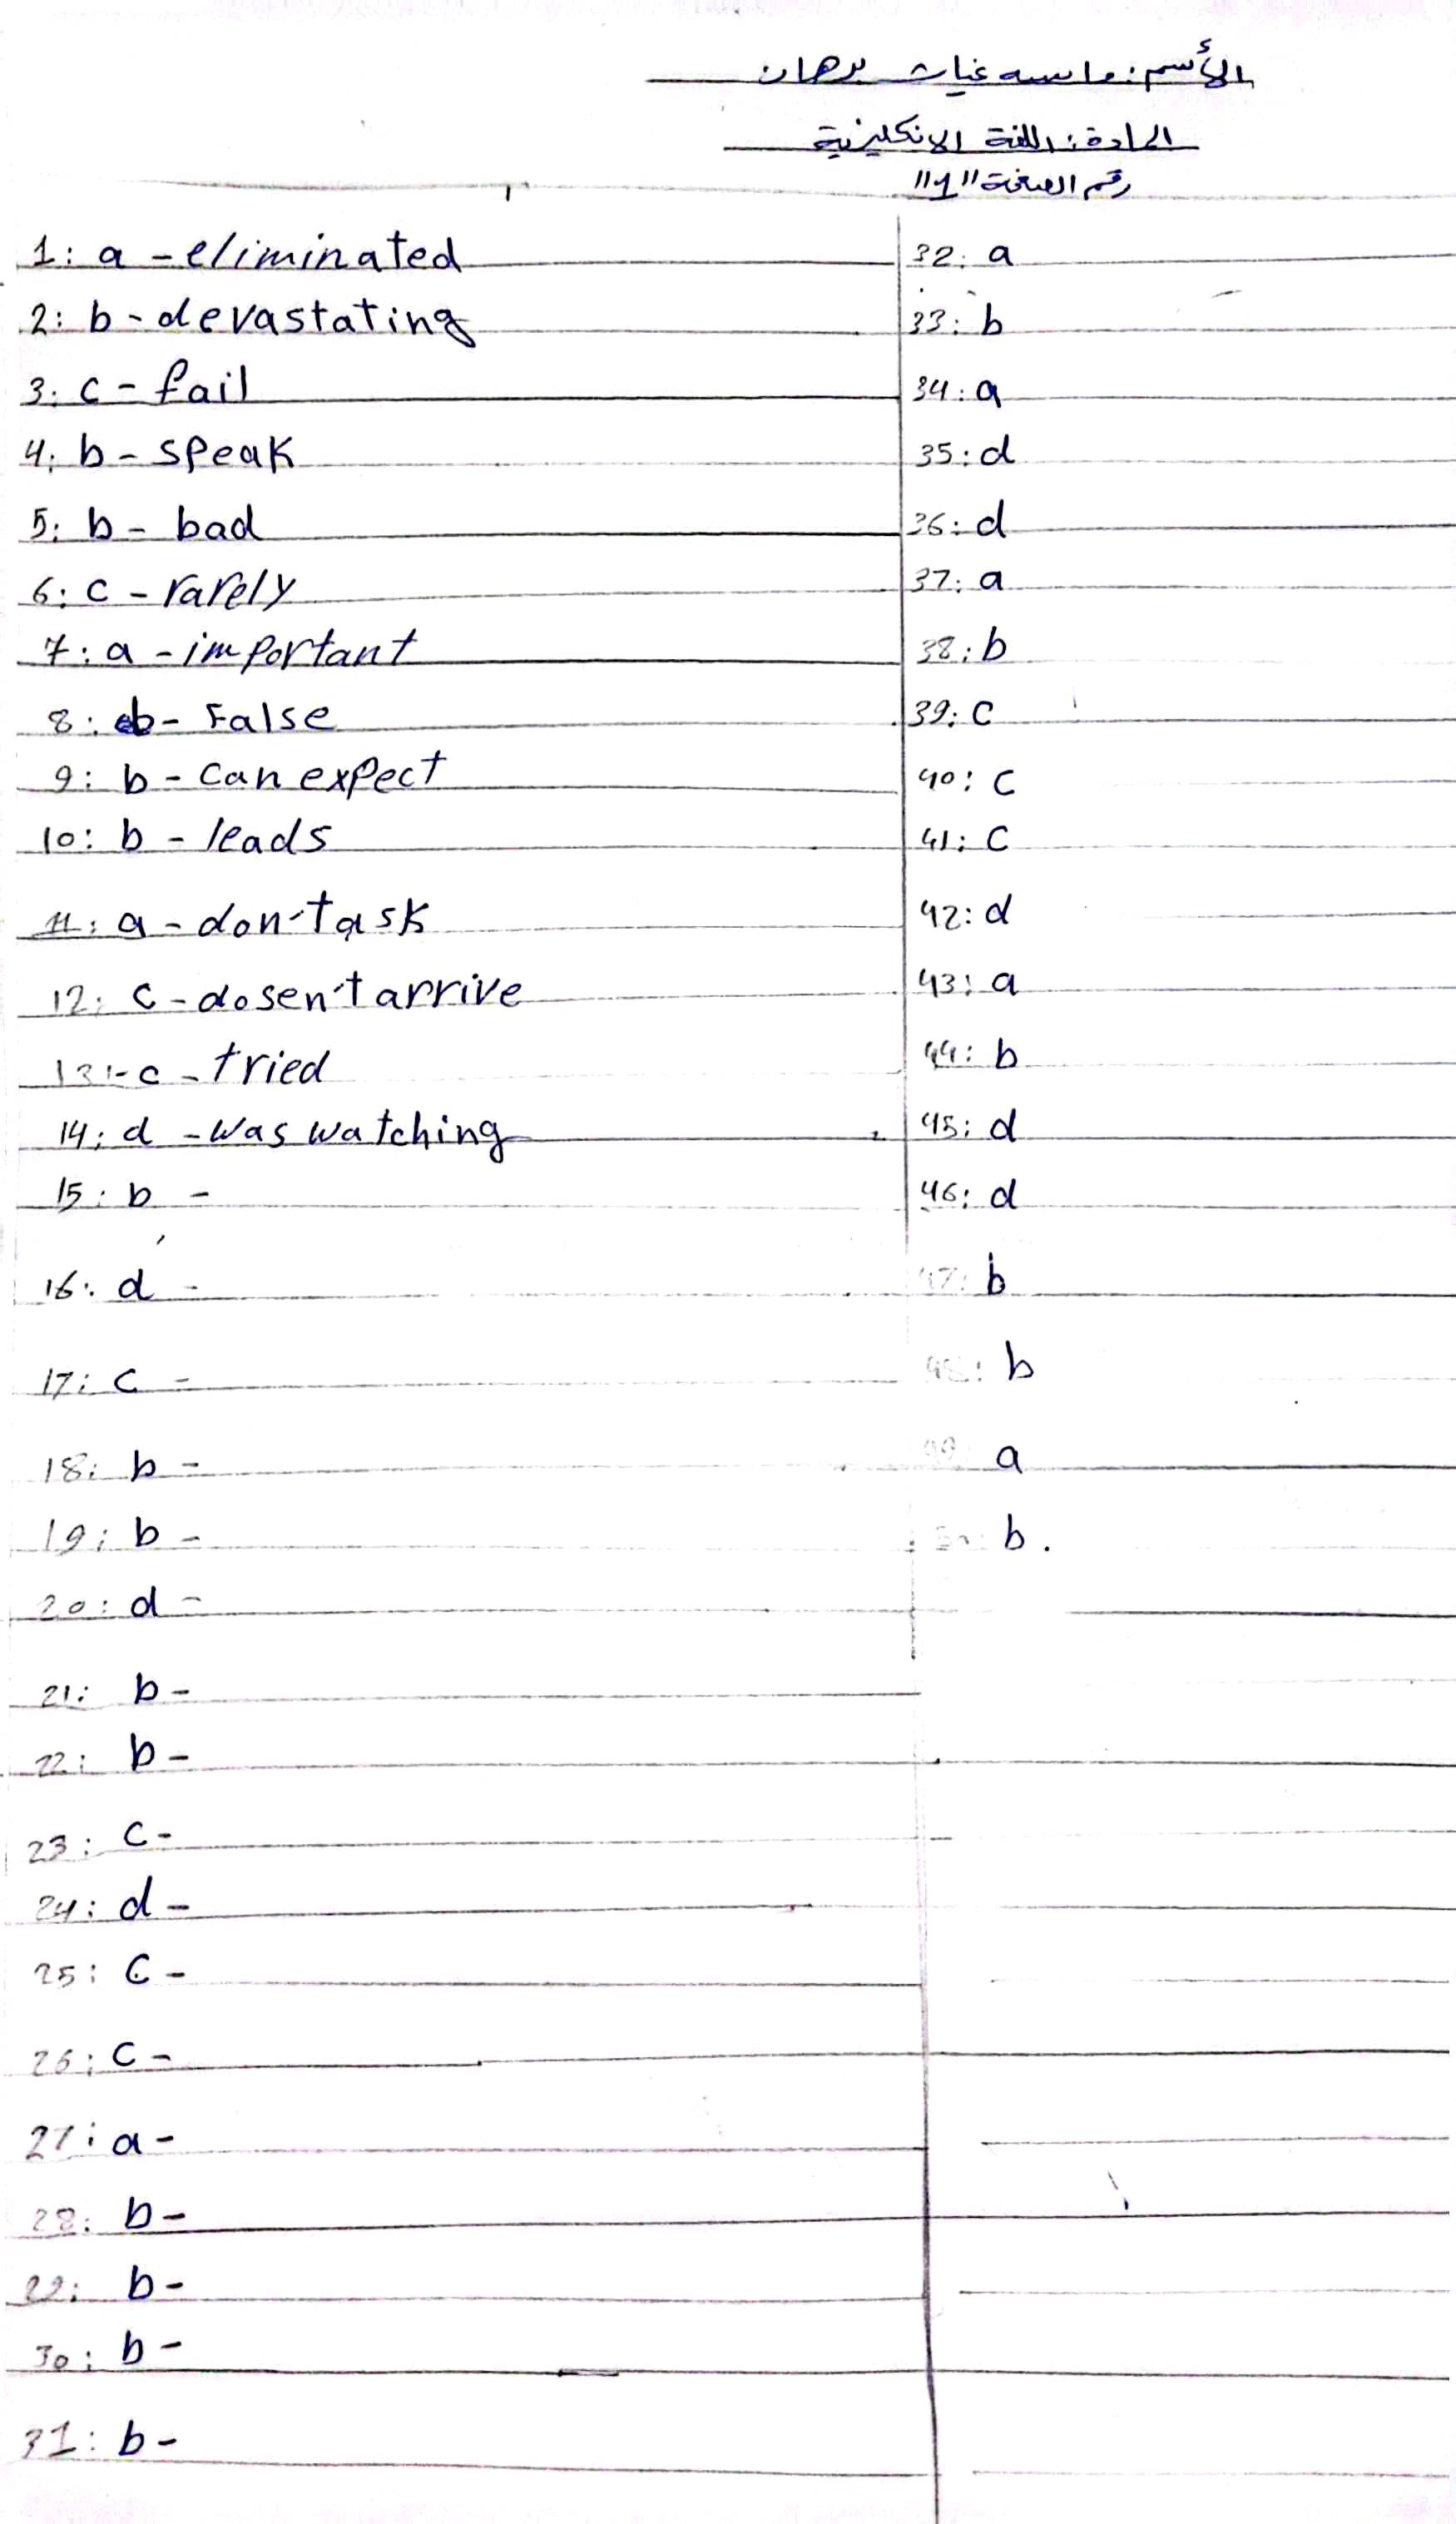 الأسم: ماسه غياث برهان
المادة: اللغة الانكليزية
رقم الصفحة "1"
1: a - eliminated
2: b - devastating
3: c - fail
4: b - speak
5: b - bad
6: c - rarely
7: a - important
8: b - False
9: b - can expect
10: b - leads
11: a - don't ask
12: c - dosen't arrive
13:- c - tried
14: d - was watching
15: b -
16: d -
17: c -
18: b -
19: b -
20: d -
21: b -
22: b -
23: c -
24: d -
25: c -
26: c -
27: a -
28: b -
29: b -
30: b -
31: b -
32: a
33: b
34: a
35: d
36: d
37: a
38: b
39: c
40: c
41: c
42: d
43: a
44: b
45: d
46: d
47: b
48: b
49: a
50: b.